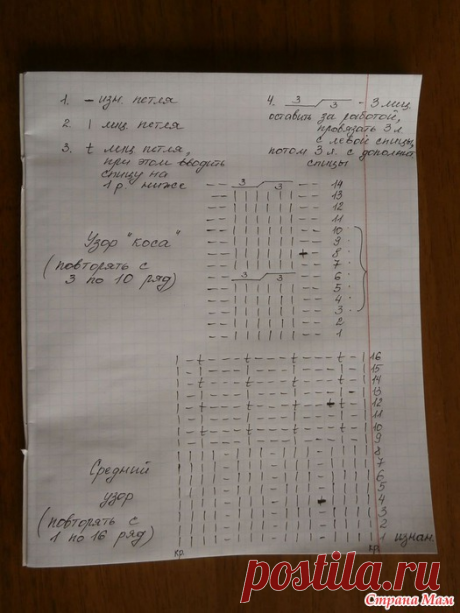 1. — изн. петля
2. | лиц петля
3. t лиц петля,
при этом вводить
спицу на
1 р. ниже
4. 3 3 - 3 лиц
оставить за работой,
провязать 3 л
с левой спицы,
потом 3 л. с дополн
спицы
Узор "коса"
(повторять с
3 по 10 ряд)
3 3 14
13
12
11
10
9
8
7
3 3 6
5
4
3
2
1
Средний
узор
(повторять с
1 по 16 ряд)
16
15
14
13
12
11
10
9
8
7
6
5
4
3
2
1 изнан.
кр. кр.
postila.ru
Страна Мам